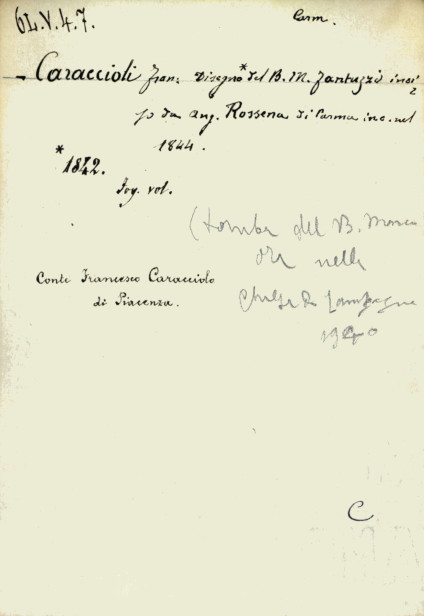 6L.V.4.7.
Carm.
Caraccioli Fran: Disegno* del B. M. Fantuzzi inci
so da Ang. Rossena di Parma inc. nel
1844.
* 1842.
Fog. vol.
(tomba del B. Marco
ora nella
Chiesa di Campagna
1940
Conte Francesco Caracciolo
di Piacenza.
C